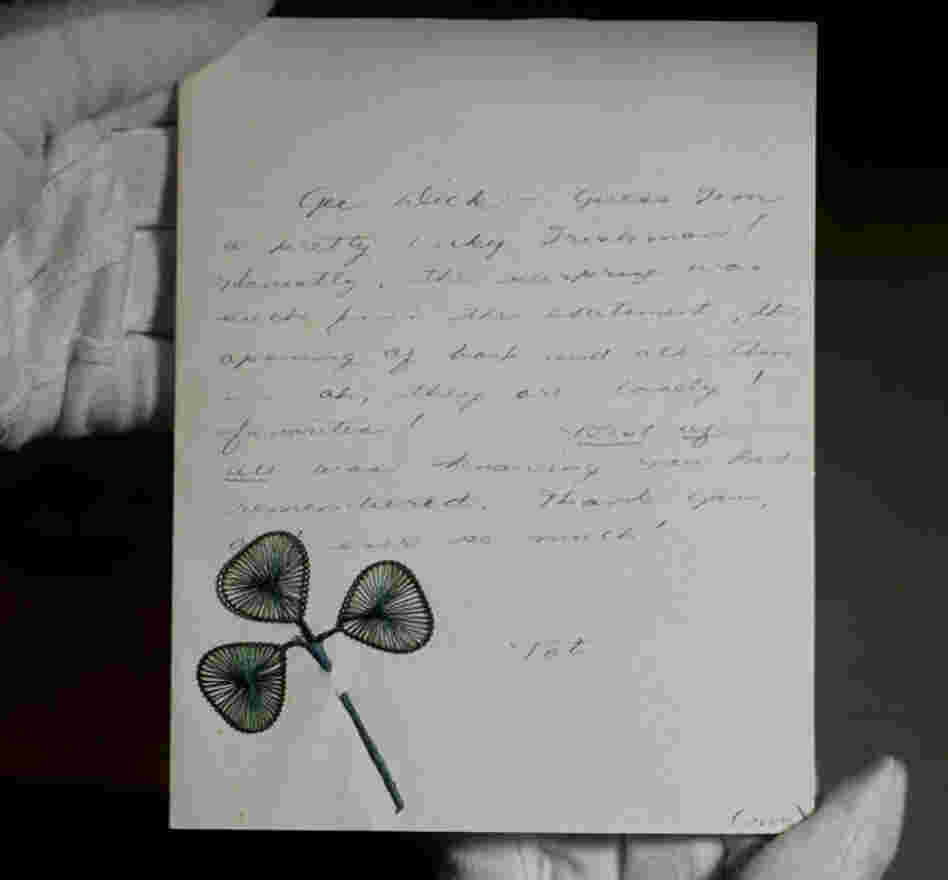 Gee Dick – Guess I'm
a pretty lucky Freshman!
Honestly, the surprise was
such fun – the excitement, the
opening of box and all. Then
oh, they are lovely!
favorites! Best of
all was knowing you had
remembered. Thank you,
ever so much!
Tot
(over)